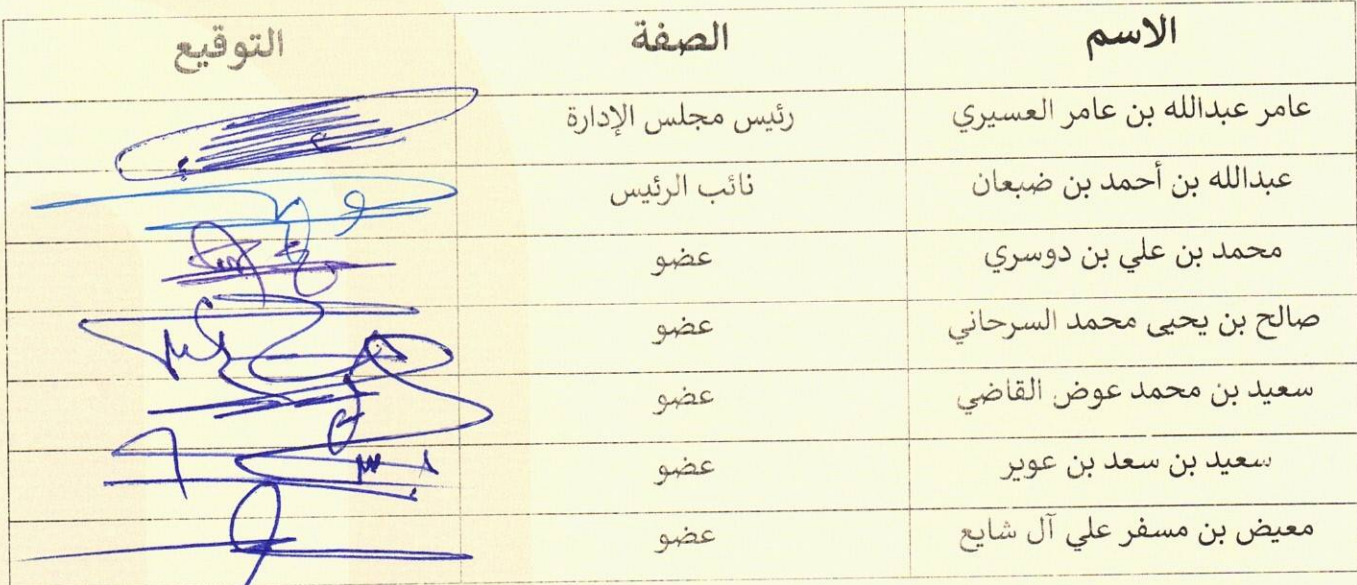 الاسم الصفة التوقيع
عامر عبدالله بن عامر العسيري رئيس مجلس الإدارة
عبدالله بن أحمد بن ضبعان نائب الرئيس
محمد بن علي بن دوسري عضو
صالح بن يحيى محمد السرحاني عضو
سعيد بن محمد عوض القاضي عضو
سعيد بن سعد بن عوير عضو
معيض بن مسفر علي آل شايع عضو